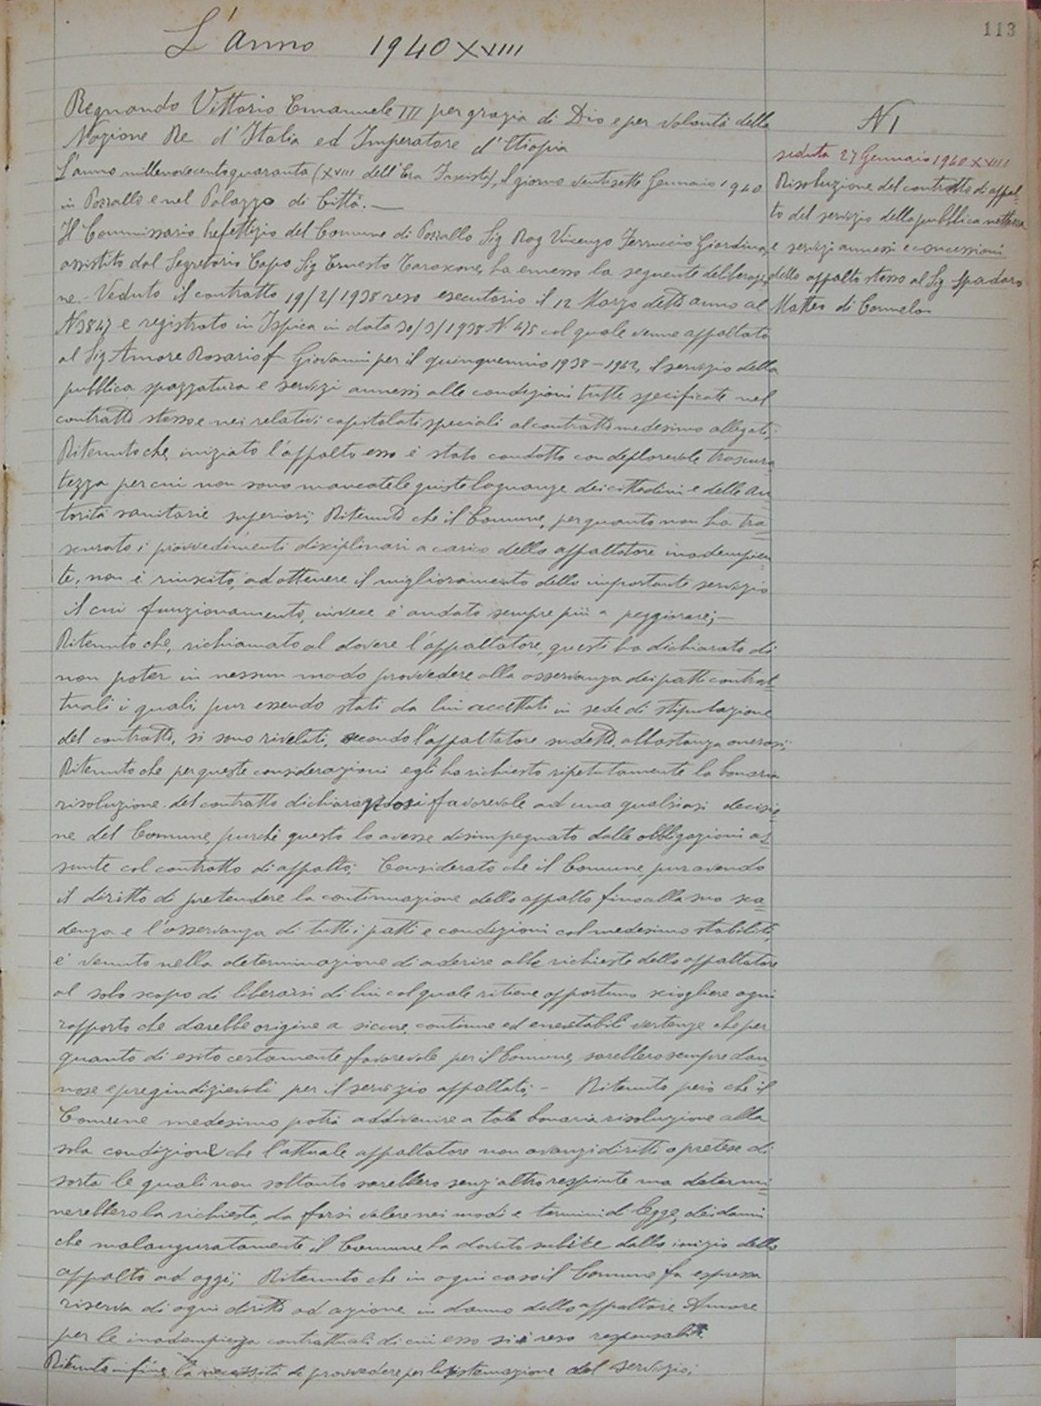 113
L'anno 1940 XVIII
Regnando Vittorio Emanuele III per grazia di Dio e per volontà della
Nazione Re d'Italia ed Imperatore d'Etiopia
L'anno millenovecentoquaranta (XVIII dell'Era Fascista), il giorno ventisette Gennaio 1940
in Pozzallo e nel Palazzo di Città.—
Il Commissario Prefettizio del Comune di Pozzallo Sig Rag Vincenzo Ferruccio Giardina,
assistito dal Segretario Capo Sig Ernesto Tarascone, ha emesso la seguente deliberazio
ne. Veduto il contratto 19/2/1938 reso esecutorio il 12 Marzo detto anno al
N3847 e registrato in Ispica in data 30/3/1938 N 475 col quale venne appaltato
al Sig Amore Rosario f Giovanni per il quinquennio 1938-1942, il servizio della
pubblica spazzatura e servizi annessi alle condizioni tutte specificate nel
contratto stesso e nei relativi capitolati speciali al contratto medesimo allegati;
Ritenuto che, iniziato l'appalto esso è stato condotto con deplorevole trascura
tezza per cui non sono mancate le giuste lagnanze dei cittadini e delle au
torità sanitarie superiori; Ritenuto che il Comune, per quanto non ha tra
scurato i provvedimenti disciplinari a carico dello appaltatore inadempien
te, non è riuscito, ad ottenere il miglioramento dello importante servizio
il cui funzionamento, invece è andato sempre più a peggiorare;—
Ritenuto che, richiamato al dovere l'appaltatore, questi ha dichiarato di
non poter in nessun modo provvedere alla osservanza dei patti contrat
tuali i quali, pur essendo stati da lui accettati in sede di stipulazione
del contratto, si sono rivelati, secondo l'appaltatore sudetto, abbastanza onerosi;
Ritenuto che per queste considerazioni egli ha richiesto ripetutamente la bonaria
risoluzione del contratto dichiarandosi favorevole ad una qualsiasi decisio
ne del Comune, purché questo lo avesse disimpegnato dalle obbligazioni as
sunte col contratto di appalto; Considerato che il Comune, pur avendo
il diritto di pretendere la continuazione dello appalto fino alla sua sca
denza e l'osservanza di tutti i patti e condizioni col medesimo stabiliti,
e' venuto nella determinazione di aderire alle richieste dello appaltatore
al solo scopo di liberarsi di lui col quale ritiene opportuno sciogliere ogni
rapporto che darebbe origine a sicure, continue ed inevitabili vertenze che per
quanto di esito certamente favorevole per il Comune, sarebbero sempre dan
nose e pregiudizievoli per il servizio appaltato;— Ritenuto però che il
Comune medesimo potrà addivenire a tale bonaria risoluzione alla
sola condizione che l'attuale appaltatore non avanzi diritti o pretese di
sorta le quali non soltanto sarebbero senz'altro respinte ma determi
nerebbero la richiesta, da farsi valere nei modi e termini di legge, dei danni
che malauguratamente il Comune ha dovuto subire dallo inizio dello
appalto ad oggi; Ritenuto che in ogni caso il Comune fa espressa
riserva di ogni diritto ad azione in danno dello appaltatore Amore
per le inadempienze contrattuali di cui esso si è reso responsabile.
Ritenuto infine la necessità di provvedere per la sistemazione del servizio;
N 1
seduta 27 Gennaio 1940 XVIII
Risoluzione del contratto di appal
to del servizio della pubblica nettezza
e servizi annessi e concessioni
dello appalto stesso al Sig. Spadaro
Matteo di Carmelo